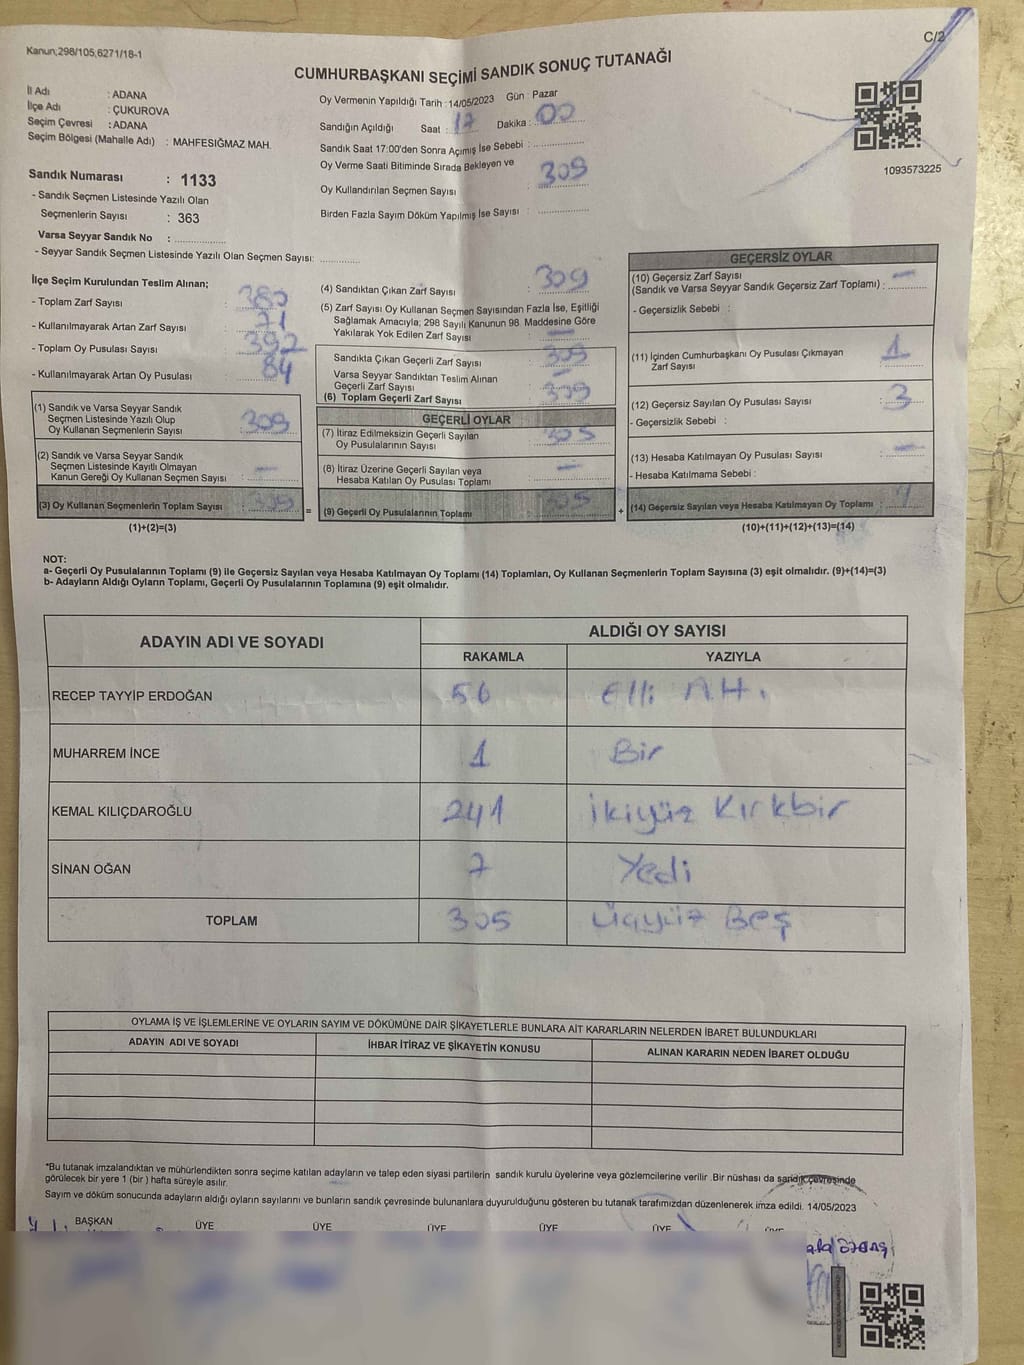 Kanun,298/105,6271/18-1
C/2
CUMHURBAŞKANI SEÇİMİ SANDIK SONUÇ TUTANAĞI
İl Adı : ADANA
İlçe Adı : ÇUKUROVA
Seçim Çevresi : ADANA
Seçim Bölgesi (Mahalle Adı) : MAHFESIĞMAZ MAH.
Oy Vermenin Yapıldığı Tarih : 14/05/2023 Gün : Pazar
Sandığın Açıldığı Saat : 17 Dakika : 00
Sandık Saat 17:00'den Sonra Açımış İse Sebebi :
Oy Verme Saati Bitiminde Sırada Bekleyen ve
Oy Kullandırılan Seçmen Sayısı 309
Birden Fazla Sayım Döküm Yapılmış İse Sayısı :
1093573225
Sandık Numarası : 1133
- Sandık Seçmen Listesinde Yazılı Olan
Seçmenlerin Sayısı : 363
Varsa Seyyar Sandık No :
- Seyyar Sandık Seçmen Listesinde Yazılı Olan Seçmen Sayısı:
İlçe Seçim Kurulundan Teslim Alınan;
- Toplam Zarf Sayısı : 380
- Kullanılmayarak Artan Zarf Sayısı : 71
- Toplam Oy Pusulası Sayısı : 392
- Kullanılmayarak Artan Oy Pusulası : 84
(1) Sandık ve Varsa Seyyar Sandık
Seçmen Listesinde Yazılı Olup
Oy Kullanan Seçmenlerin Sayısı : 309
(2) Sandık ve Varsa Seyyar Sandık
Seçmen Listesinde Kayıtlı Olmayan
Kanun Gereği Oy Kullanan Seçmen Sayısı : —
(3) Oy Kullanan Seçmenlerin Toplam Sayısı : 309
(1)+(2)=(3)
(4) Sandıktan Çıkan Zarf Sayısı : 309
(5) Zarf Sayısı Oy Kullanan Seçmen Sayısından Fazla İse, Eşitliği
Sağlamak Amacıyla; 298 Sayılı Kanunun 98. Maddesine Göre
Yakılarak Yok Edilen Zarf Sayısı : —
Sandıkta Çıkan Geçerli Zarf Sayısı : 309
Varsa Seyyar Sandıktan Teslim Alınan
Geçerli Zarf Sayısı : —
(6) Toplam Geçerli Zarf Sayısı : 309
GEÇERLİ OYLAR
(7) İtiraz Edilmeksizin Geçerli Sayılan
Oy Pusulalarının Sayısı : 305
(8) İtiraz Üzerine Geçerli Sayılan veya
Hesaba Katılan Oy Pusulası Toplamı : —
= (9) Geçerli Oy Pusulalarının Toplamı : 305
GEÇERSİZ OYLAR
(10) Geçersiz Zarf Sayısı
(Sandık ve Varsa Seyyar Sandık Geçersiz Zarf Toplamı) : —
- Geçersizlik Sebebi :
(11) İçinden Cumhurbaşkanı Oy Pusulası Çıkmayan
Zarf Sayısı : 1
(12) Geçersiz Sayılan Oy Pusulası Sayısı : 3
- Geçersizlik Sebebi :
(13) Hesaba Katılmayan Oy Pusulası Sayısı : —
- Hesaba Katılmama Sebebi :
+ (14) Geçersiz Sayılan veya Hesaba Katılmayan Oy Toplamı :
(10)+(11)+(12)+(13)=(14)
NOT:
a- Geçerli Oy Pusulalarının Toplamı (9) ile Geçersiz Sayılan veya Hesaba Katılmayan Oy Toplamı (14) Toplamları, Oy Kullanan Seçmenlerin Toplam Sayısına (3) eşit olmalıdır. (9)+(14)=(3)
b- Adayların Aldığı Oyların Toplamı, Geçerli Oy Pusulalarının Toplamına (9) eşit olmalıdır.
ADAYIN ADI VE SOYADI
ALDIĞI OY SAYISI
RAKAMLA YAZIYLA
RECEP TAYYİP ERDOĞAN 56 Elli Altı
MUHARREM İNCE 1 Bir
KEMAL KILIÇDAROĞLU 241 İkiyüz Kırkbir
SİNAN OĞAN 7 Yedi
TOPLAM 305 Üçyüz Beş
OYLAMA İŞ VE İŞLEMLERİNE VE OYLARIN SAYIM VE DÖKÜMÜNE DAİR ŞİKAYETLERLE BUNLARA AİT KARARLARIN NELERDEN İBARET BULUNDUKLARI
ADAYIN ADI VE SOYADI İHBAR İTİRAZ VE ŞİKAYETİN KONUSU ALINAN KARARIN NEDEN İBARET OLDUĞU
*Bu tutanak imzalandıktan ve mühürlendikten sonra seçime katılan adayların ve talep eden siyasi partilerin sandık kurulu üyelerine veya gözlemcilerine verilir. Bir nüshası da sandık çevresinde
görülecek bir yere 1 (bir ) hafta süreyle asılır.
Sayım ve döküm sonucunda adayların aldığı oyların sayılarını ve bunların sandık çevresinde bulunanlara duyurulduğunu gösteren bu tutanak tarafımızdan düzenlenerek imza edildi. 14/05/2023
BAŞKAN ÜYE ÜYE ÜYE ÜYE ÜYE ÜYE